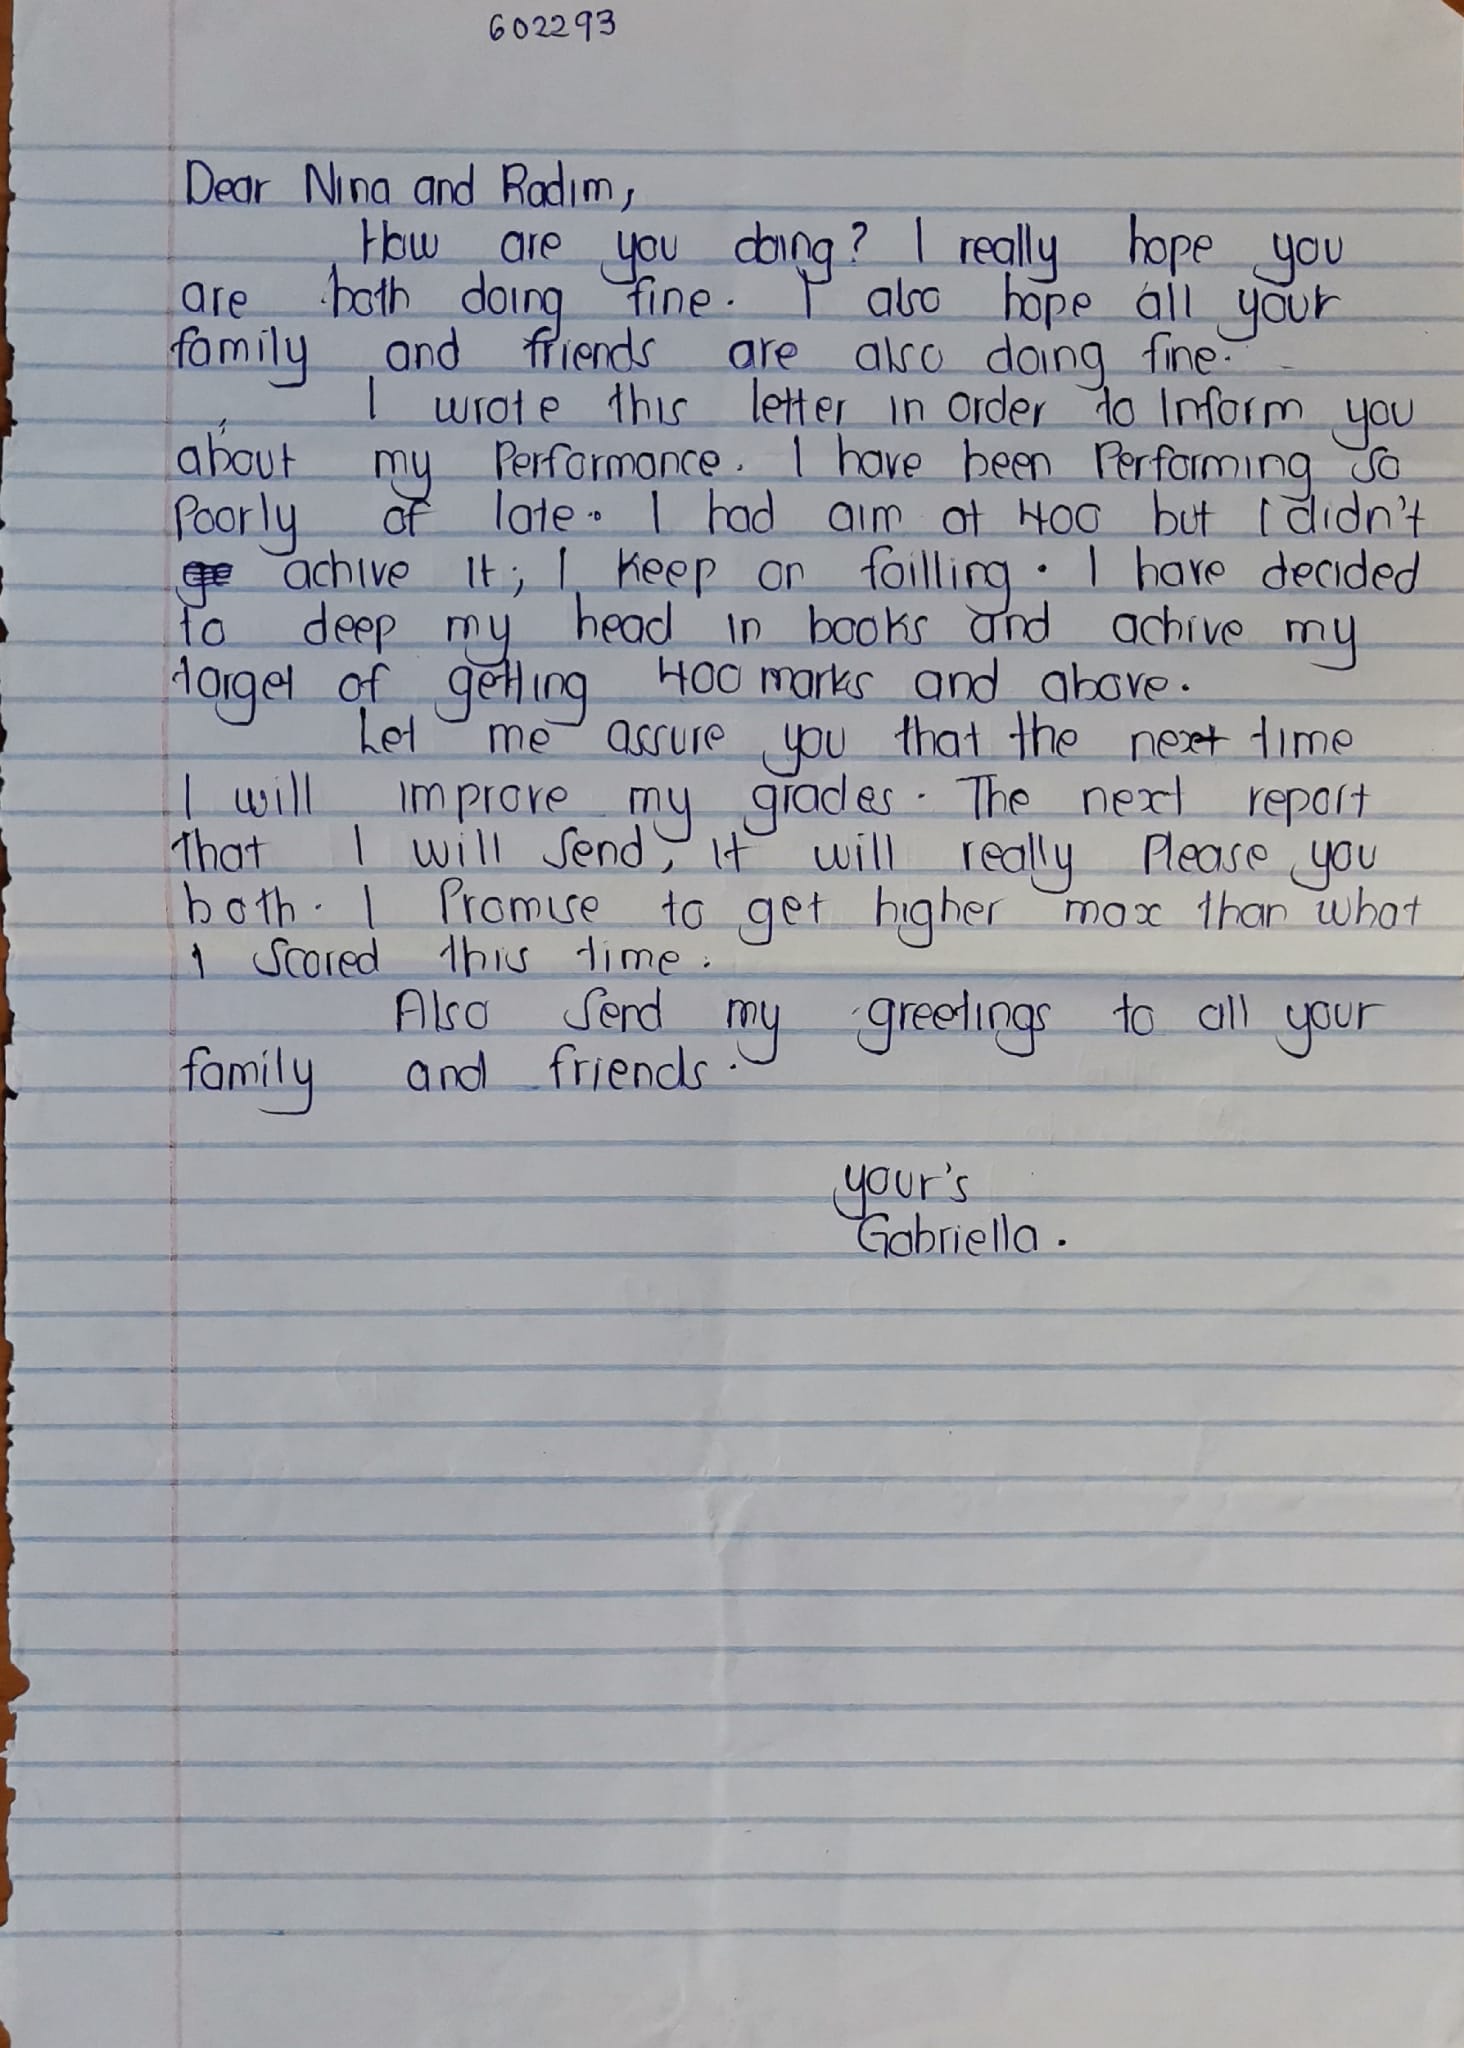 602293
Dear Nina and Radim,
How are you doing? I really hope you
are both doing fine. I also hope all your
family and friends are also doing fine.
I wrote this letter in order to Inform you
about my Performance. I have been Performing so
Poorly of late. I had aim at 400 but I didn't
achive it; I keep on failling. I have decided
to deep my head in books and achive my
target of getting 400 marks and above.
Let me assure you that the next time
I will improve my grades. The next report
that I will send, it will really Please you
both. I Promise to get higher max than what
I scored this time.
Also send my greetings to all your
family and friends.
your's
Gabriella.